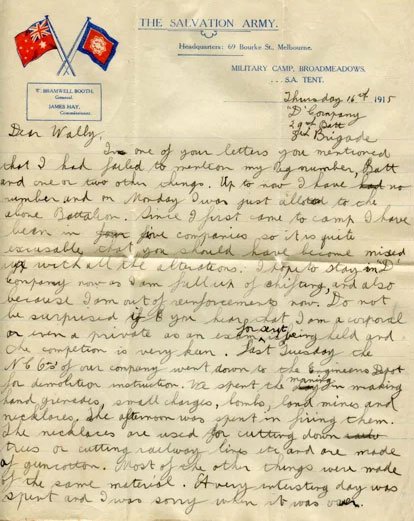 THE SALVATION ARMY.
Headquarters: 69 Bourke St., Melbourne.
W. BRAMWELL BOOTH,
General.
JAMES HAY,
Commissioner.
MILITARY CAMP, BROADMEADOWS.
...S.A. TENT.
Thursday 16th 1915
"D" Company
29th Batt
8th Brigade
Dear Wally,
In one of your letters you mentioned
that I had failed to mention my Reg number, Batt
and one or two other things. Up to now I have had no
number and on Monday I was just alloted to the
above Battalion. Since I first came to camp I have
been in four five companies so it is quite
excusable that you should have become mixed
up with all the alterations. I hope to stay in D
Company now as I am full up of shifting, and also
because I am out of reinforcements now. Do not
be surprised if you hear that I am a corporal
or even a private as an exam for sergt, is being held and
the competion is very keen. Last Tuesday the
N.C.O's of our company went down to the Engineers Depot
for demolition instruction. We spent the morning in making
hand grenades, small charges, bombs, land mines and
necklaces, the afternoon was spent in firing them.
The necklaces are used for cutting down
trees or cutting railway lines etc and are made
of guncotton. Most of the other things were made
of the same material. A very intersting day was
spent and I was sorry when it was over.